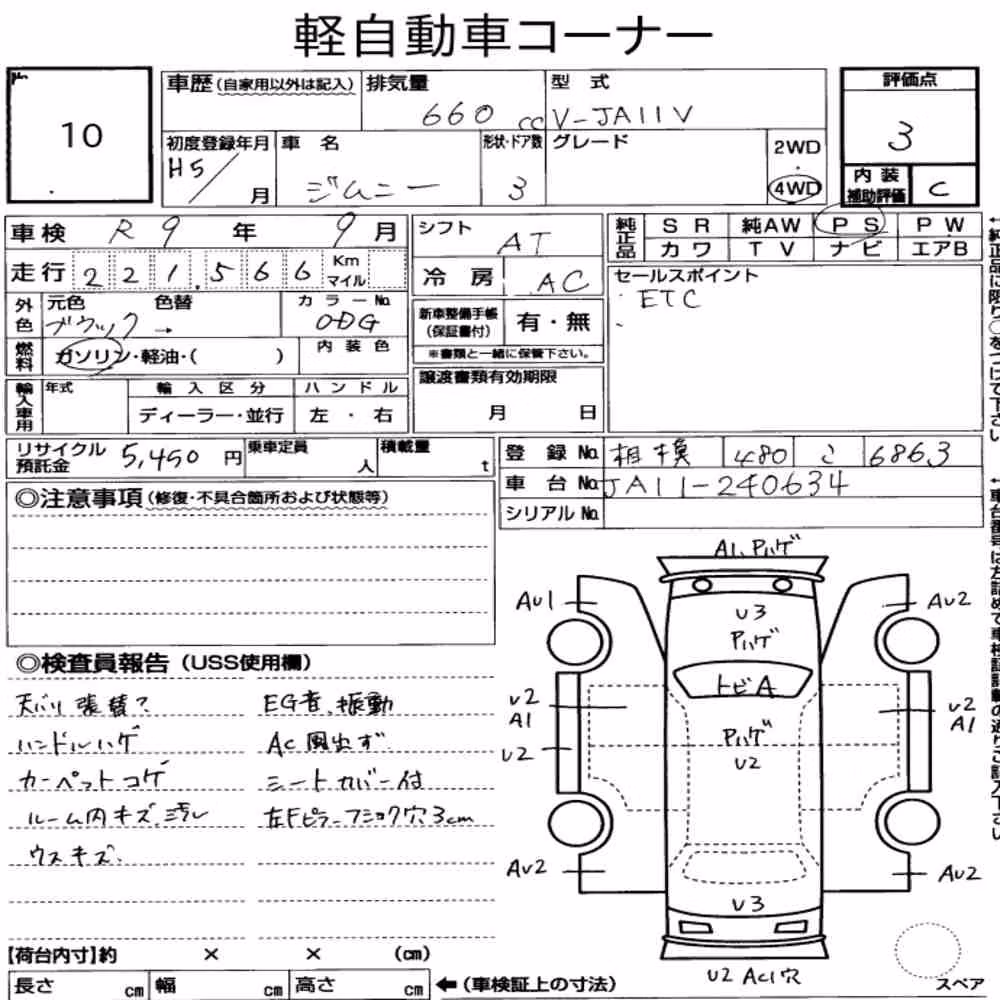 軽自動車コーナー
№
10
車歴(自家用以外は記入)
排気量
660 cc
型 式
V-JA11V
評価点
3
内装補助評価
C
初度登録年月
H5/ 月
車 名
ジムニー
形状・ドア数
3
グレード
2WD
・
4WD
車検 R 9 年 9 月
走行 2 2 1 . 5 6 6 Km マイル
外色
元色
色替
カラーNo.
→
燃料
ガソリン・軽油・( )
内装色
輸入車用
年式
輸入区分
ディーラー・並行
ハンドル
左・右
シフト
AT
冷房
AC
新車整備手帳(保証書付)
有・無
※書類と一緒に保管下さい。
譲渡書類有効期限
月 日
純正品
SR 純AW PS PW
カワ TV ナビ エアB
セールスポイント
・ETC
リサイクル預託金 5,450 円
乗車定員 人
積載量 t
登録 No. 相模 480 6863
車台 No. JA11-240634
シリアル No.
◎注意事項(修復・不具合箇所および状態等)
◎検査員報告(USS使用欄)
天バリ張替?
ハンドルハゲ
カーペットコゲ
ルーム内キズ、汚レ
ウスキズ
EG音、振動
AC風出ず
シートカバー付
左Fピラーフミョク穴3cm
A1、Pハゲ
AU1
AU2
U3
Pハゲ
トビA
U2
A1
U2
Pハゲ
U2
U2
A1
AU2
AU2
U3
U2 AC1 穴
スペア
【荷台内寸】約 × × (cm)
長さ cm 幅 cm 高さ cm
←(車検証上の寸法)